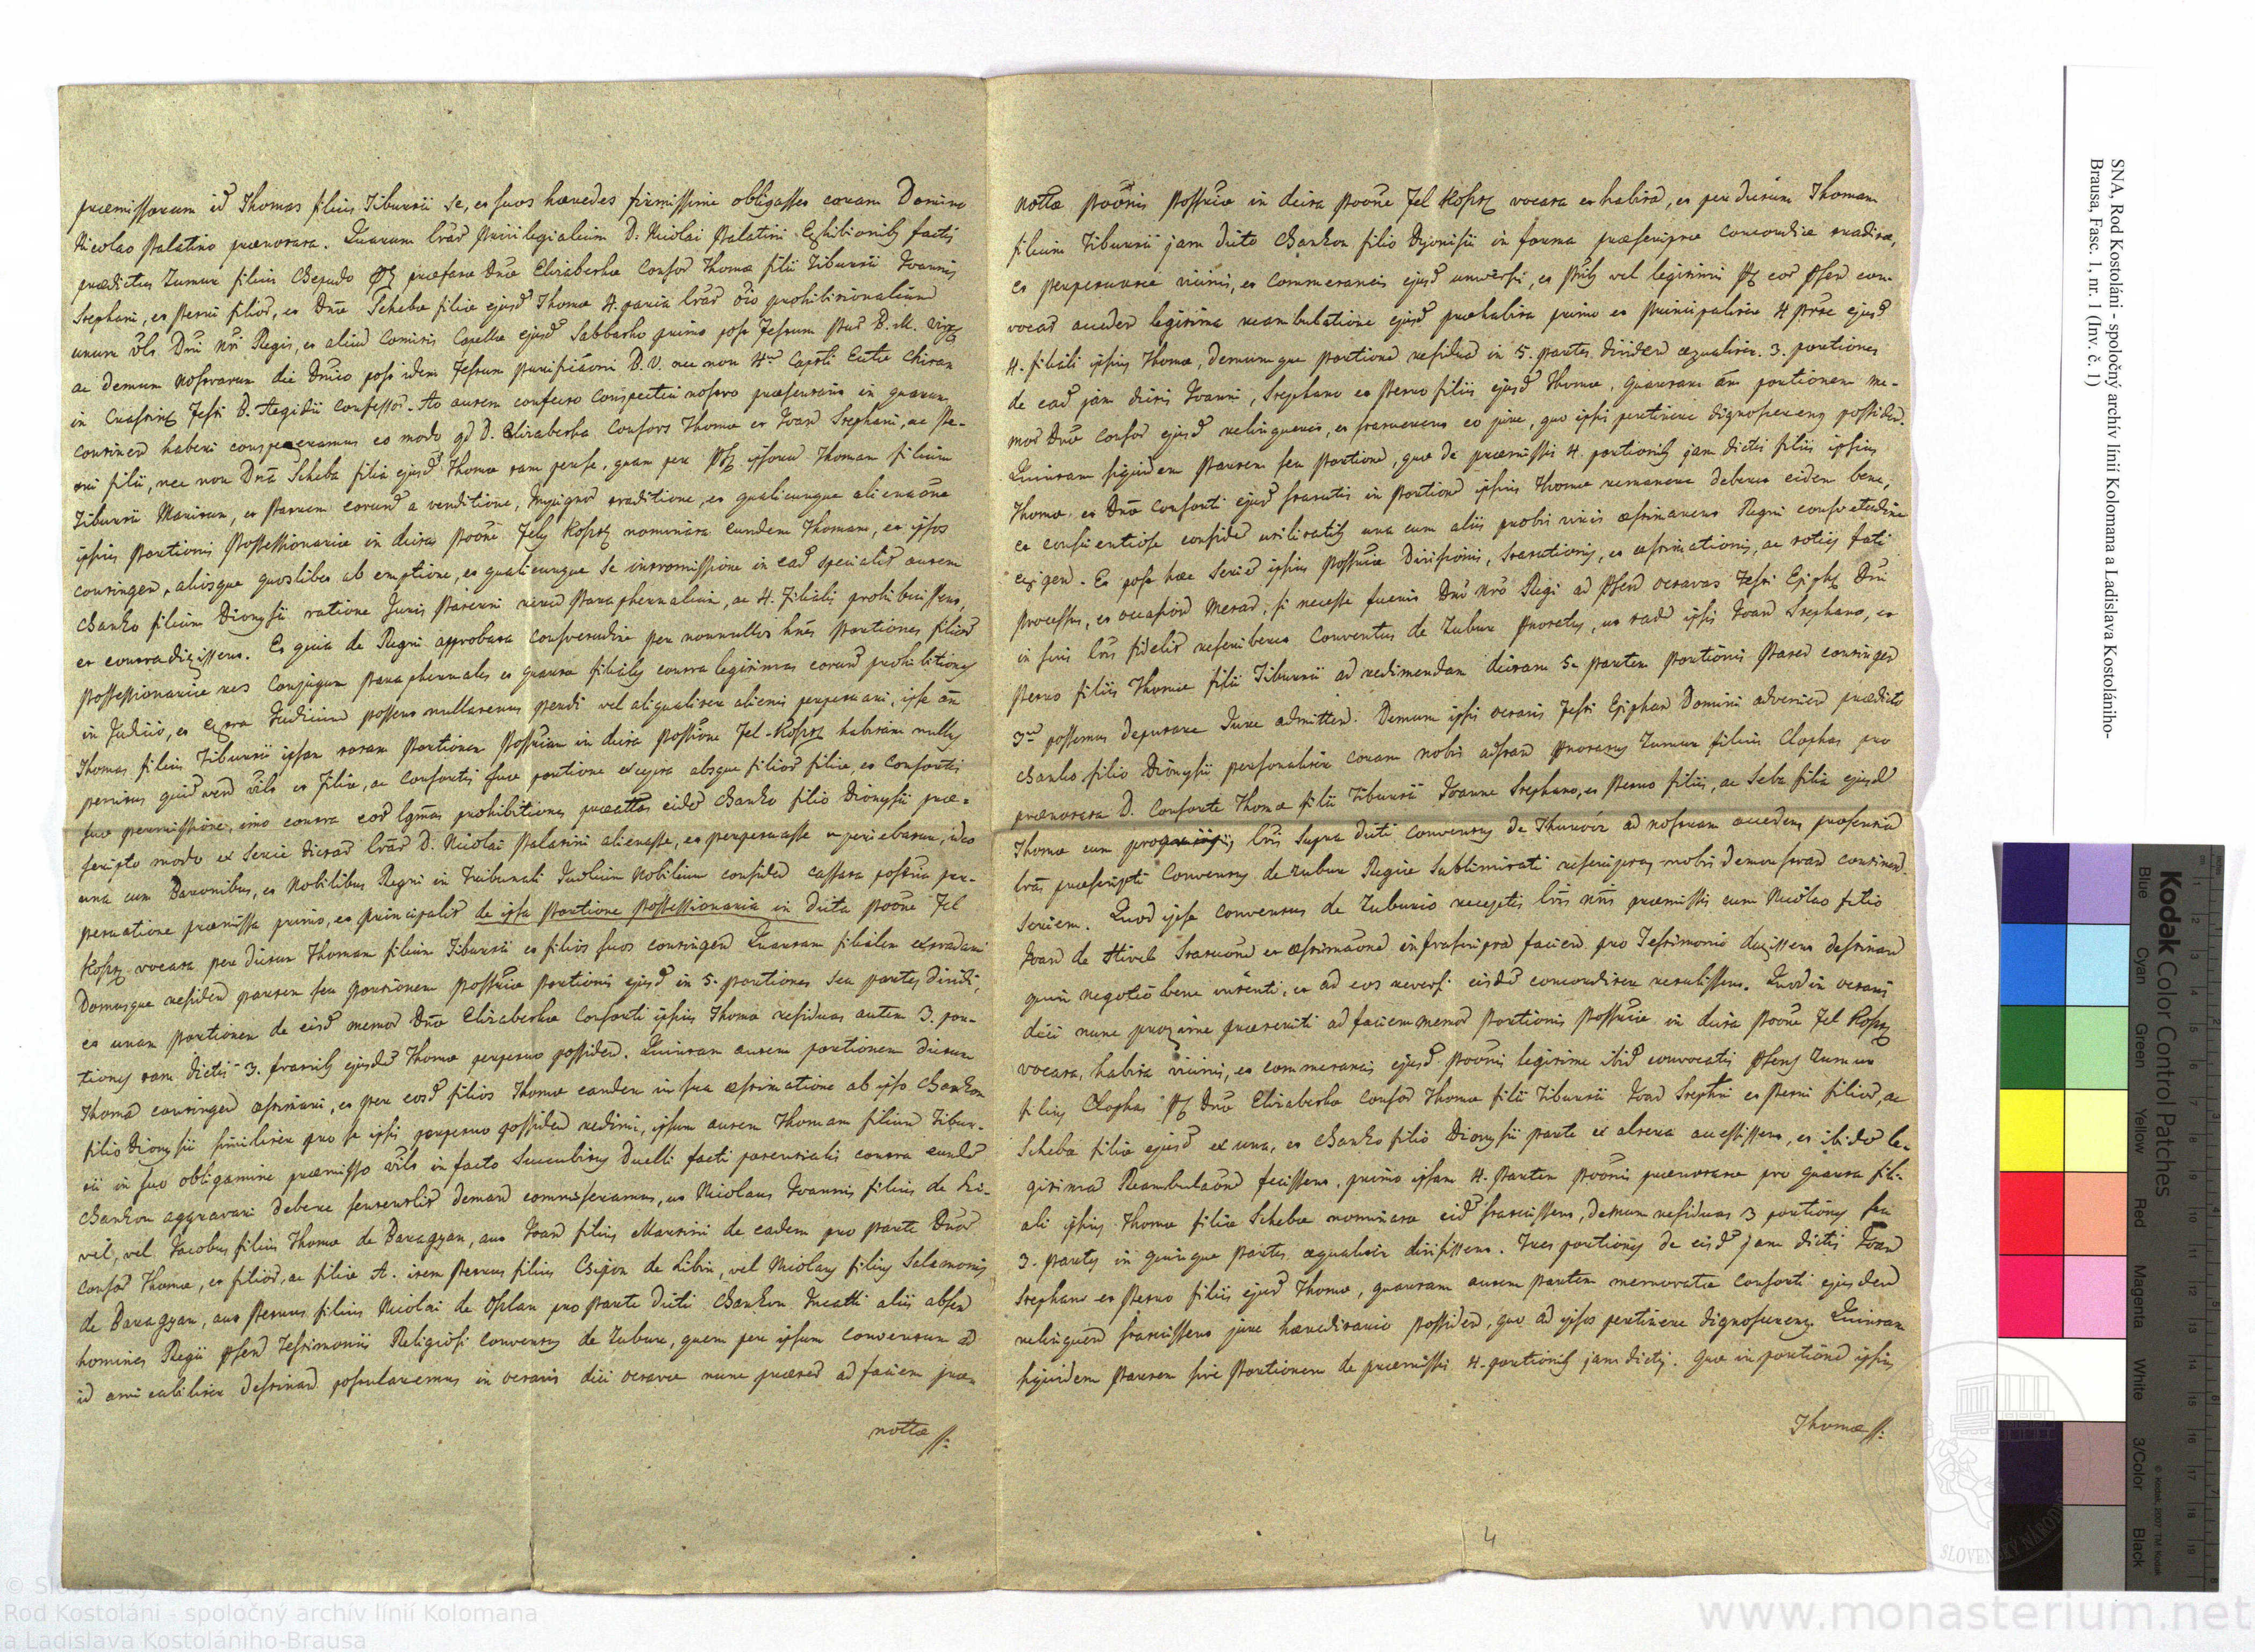 præmissorum id Thomas filius Tiburtii se, et suos hæredes firmissime obligasset coram Domino
Nicolao Palatino prænotato. Quarum lrar Privilegialium D. Nicolai Palatini Exhibitionib factis
prædictus Zumur filius Chepudo præfatæ Dnæ Elizabethæ Consor Thomæ filii Tiburtii Joannis
Stephani, et Petri filior, et Dnæ Scheba filiæ ejusd Thomæ 4. paria lrar prohibitionalium
unum Dni nri Regis, et aliud Comitis Capellæ ejusd Sabbatho primo post Festum B. M. Virg
ac demum nostrarum die Dnico post idem Festum purificaoni B. V. nec non Capli Eccliæ Chiran
in Crastino Festi B. Aegidii confessor. autem confecto conspectui nostro præsentans in quarum
continen haberi conspexeramus eo modo qd D. Elizabetha Consors Thomæ et Joan Stephani, ac Pe-
tri filii, nec non Dna Scheba filia ejusd Thomæ tam per se, quam per ipsorum Thomam filium
Tiburtii Maritum, et Patrem eorund a venditione, Impignor traditione, et qualicunque alienaone
ipsius Portionis Possessionariæ in dicta Poone Fely Koszt nominata eundem Thomam, et ipsos
contingen, aliosque quoslibet ab emptione, et qualicunque se intromissione in ead specialit autem
Chanko filium Dionysii ratione Juris Paterni rerum Paraphernalium, ac 4. Filialis prohibuissent,
et contradixissent. Et quia de Regni approbata consvetudine per nonnullos hnes Portiones filior
possessionariæ res conjugum paraphernales et quarta filialis contra legitimas eorund prohibitiones
in Judicio, et extra Judicium possent nullatenus vendi vel aliqualiter alienis perpetuari, ipse an
Thomas filius Tiburtii ipsam totam Portionem Possriam in dicta Possione Fel-Koszt habitam nullis
penitus quid verd et Filiæ, ac Consortis suæ portione excepta absque filior filiæ, et Consortis
suæ permissione, imo contra eor lgmas prohibitiones præattas eid Chanko filio Dionysii præ-
scripto modo ex serie dictar lrar D. Nicolai Palatini alienasse, et perpetuasse reperiebatur, ideo
una cum Baronibus, et Nobilibus Regni in Tribunali Judicium Nobilium consider cassata possria per-
petuatione præmissa primo, et principalit de ipsa Portione Possessionaria in dicta Poone Fel
Koszt vocata per dictum Thomam filium Tiburtii et filios suos contingen Quartam filialem extradari
Domusque residen partem seu portionem Possriæ Portionis ejusd in 5. portiones seu partes dividi,
et unam Portionem de eisd memor Dnæ Elizabethæ Consorti ipsius Thomæ residuas autem 3. por-
tiones tam dictis 3. fratrib ejusd Thomæ perpetuo possiden. Quintam autem portionem dictum
Thomam contingen æstimari, et per eosd filios Thomæ eandem in sua æstimatione ab ipso Chankon
filio Dionysii similiter pro se ipsis perpetuo possiden redimi, ipsum autem Thomam filium Tibur-
tii in suo obligamine præmisso in facto Succubitus Duelli facti potentialis contra eund
Chankon aggravari debere sententialit demand commiseramus, ut Nicolaus Joannis filius de Li-
vil, vel Jacobus filius Thomæ de Baragyan, aut Joan filius Martini de eadem pro parte Dnar
Consor Thomæ, et filior, ac filiæ A. item Petrus filius Csipon de Libin, vel Nicolaus filius Salamonis
de Baragyan, aut Petrus filius Nicolai de Oszlan pro parte dicti Chankon Incatti aliis absen
homines Regii psen Testimonii Religiosi Conventus de Zubur, quem per ipsum Conventum ad
id amicabiliter destinad postularemus in octavis diei octavæ nunc præted ad faciem præ-
nottæ
nottæ Poonis Possriæ in dicta Poone Fel Koszt vocata et habita, et per dictum Thomam
filium Tiburtii jam dicto Chankon filio Dyonisii in forma præscriptæ concordiæ traditæ,
et perpetuatæ vicinis, et commetaneis ejusd universi, et vel legitimi eor psen con-
vocat acceder legitima reambulatione ejusd præhabita primo et principaliter 4 ejusd
4. filiali ipsius Thomæ, demumque portione residua in 5. partes dividen æqualiter. 3. portiones
de ead jam dictis Joanni, Stephano et Petro filiis ejusd Thomæ, quartam an portionem me-
mor Dnæ Consor ejusd relinqueret, et statueret eo jure, quo ipsis pertinere dignosceren possiden.
Quintam siquidem partem seu portione, quæ de præmissis 4. portionib jam dictis filiis ipsius
Thomæ et Dnæ Consorti ejusd statutis in portione ipsius Thomæ remanere deberet eidem bene,
et conscientiose consider utilitatib una cum aliis probis viris æstimarent Regni consvetudine
exigen. Et post hæc serie ipsius Possriæ Divisionis, Statutionis, et æstimationis, ac totius facti
processus, et occasion metar, si necesse fuerit Dno nro Regi ad psen octavas Festi Epiph Dni
in suis lris fidelit rescriberet Conventus de Zubur, ut tad ipsis Joan Stephano, et
Petro filiis Thomæ filii Tiburtii ad redimendam dictam 5. partem portionis Pared contingen
possemus deputare Jure admitten. Demum ipsis octavis Festi Epiphan Domini advenien prædicto
Chanko filio Dionysii personaliter coram nobis adstan Zumur filius Clophas pro
prænotata D. Consorte Thomæ filii Tiburtii Joanne Stephano, et Petro filiis, ac Seba filia ejusd
Thomæ cum lris supra dicti Conventus de Thurocz ad nostram acceden præsentia
lras præscripti Conventus de Zubur Regiæ Sublimitati rescriptas nobis demonstrad continen-
Seriem. Quod ipse Conventus de Zuburio receptis lris nris præmissis cum Nicolao filio
Joan de Hivel Statuone et æstimaone infrascripta facien pro Testimonio duxissent destinand
quin negotio bene, et ad eos reversi eisd concorditer retulissent. Quod in octavis
diei nunc proxime præteriti ad faciem memor Portionis Possriæ in dicta Poone Fel Koszt
vocata, habita vicinis, et commetaneis ejusd Poonis legitime ibid convocatis psens Zumur
filius Clophas Dnæ Elizabethæ Consor Thomæ filii Tiburtii Joan Stephni et Petri filior, ac
Scheba filiæ ejusd ex una, et Chanko filio Dionysii parte ex altera accessissent, et ibid le-
gitima Reambulaone fecissent, primo ipsam 4. Partem Poonis prænotatæ pro quarta fili-
ali ipsius Thomæ filiæ Scheba nominatæ eid statuissent, demum residuas 3 portiones seu
3. partes in quinque partes æqualiter divisissent. Tres portiones de eisd jam dictis Joan
Stephano et Petro filiis ejusd Thomæ, quartam autem partem memoratæ Consorti ejusdem
relinquen statuissent jure hæreditario possiden, quo ad ipsos pertinere dignosceren. Quintam
siquidem partem sive portionem de præmissis 4. portionib jam dictis. Quæ in portione ipsius
Thomæ
4
SNA, Rod Kostoláni - spoločný archív línií Kolomana a Ladislava Kostolániho-
Brausa, Fasc. 1, nr. 1 (Inv. č. 1)
Kodak Color Control Patches
Blue
Cyan
Green
Yellow
Red
Magenta
White
3/Color
Black
Rod Kostoláni - spoločný archív línií Kolomana
a Ladislava Kostolániho-Brausa
www.monasterium.net